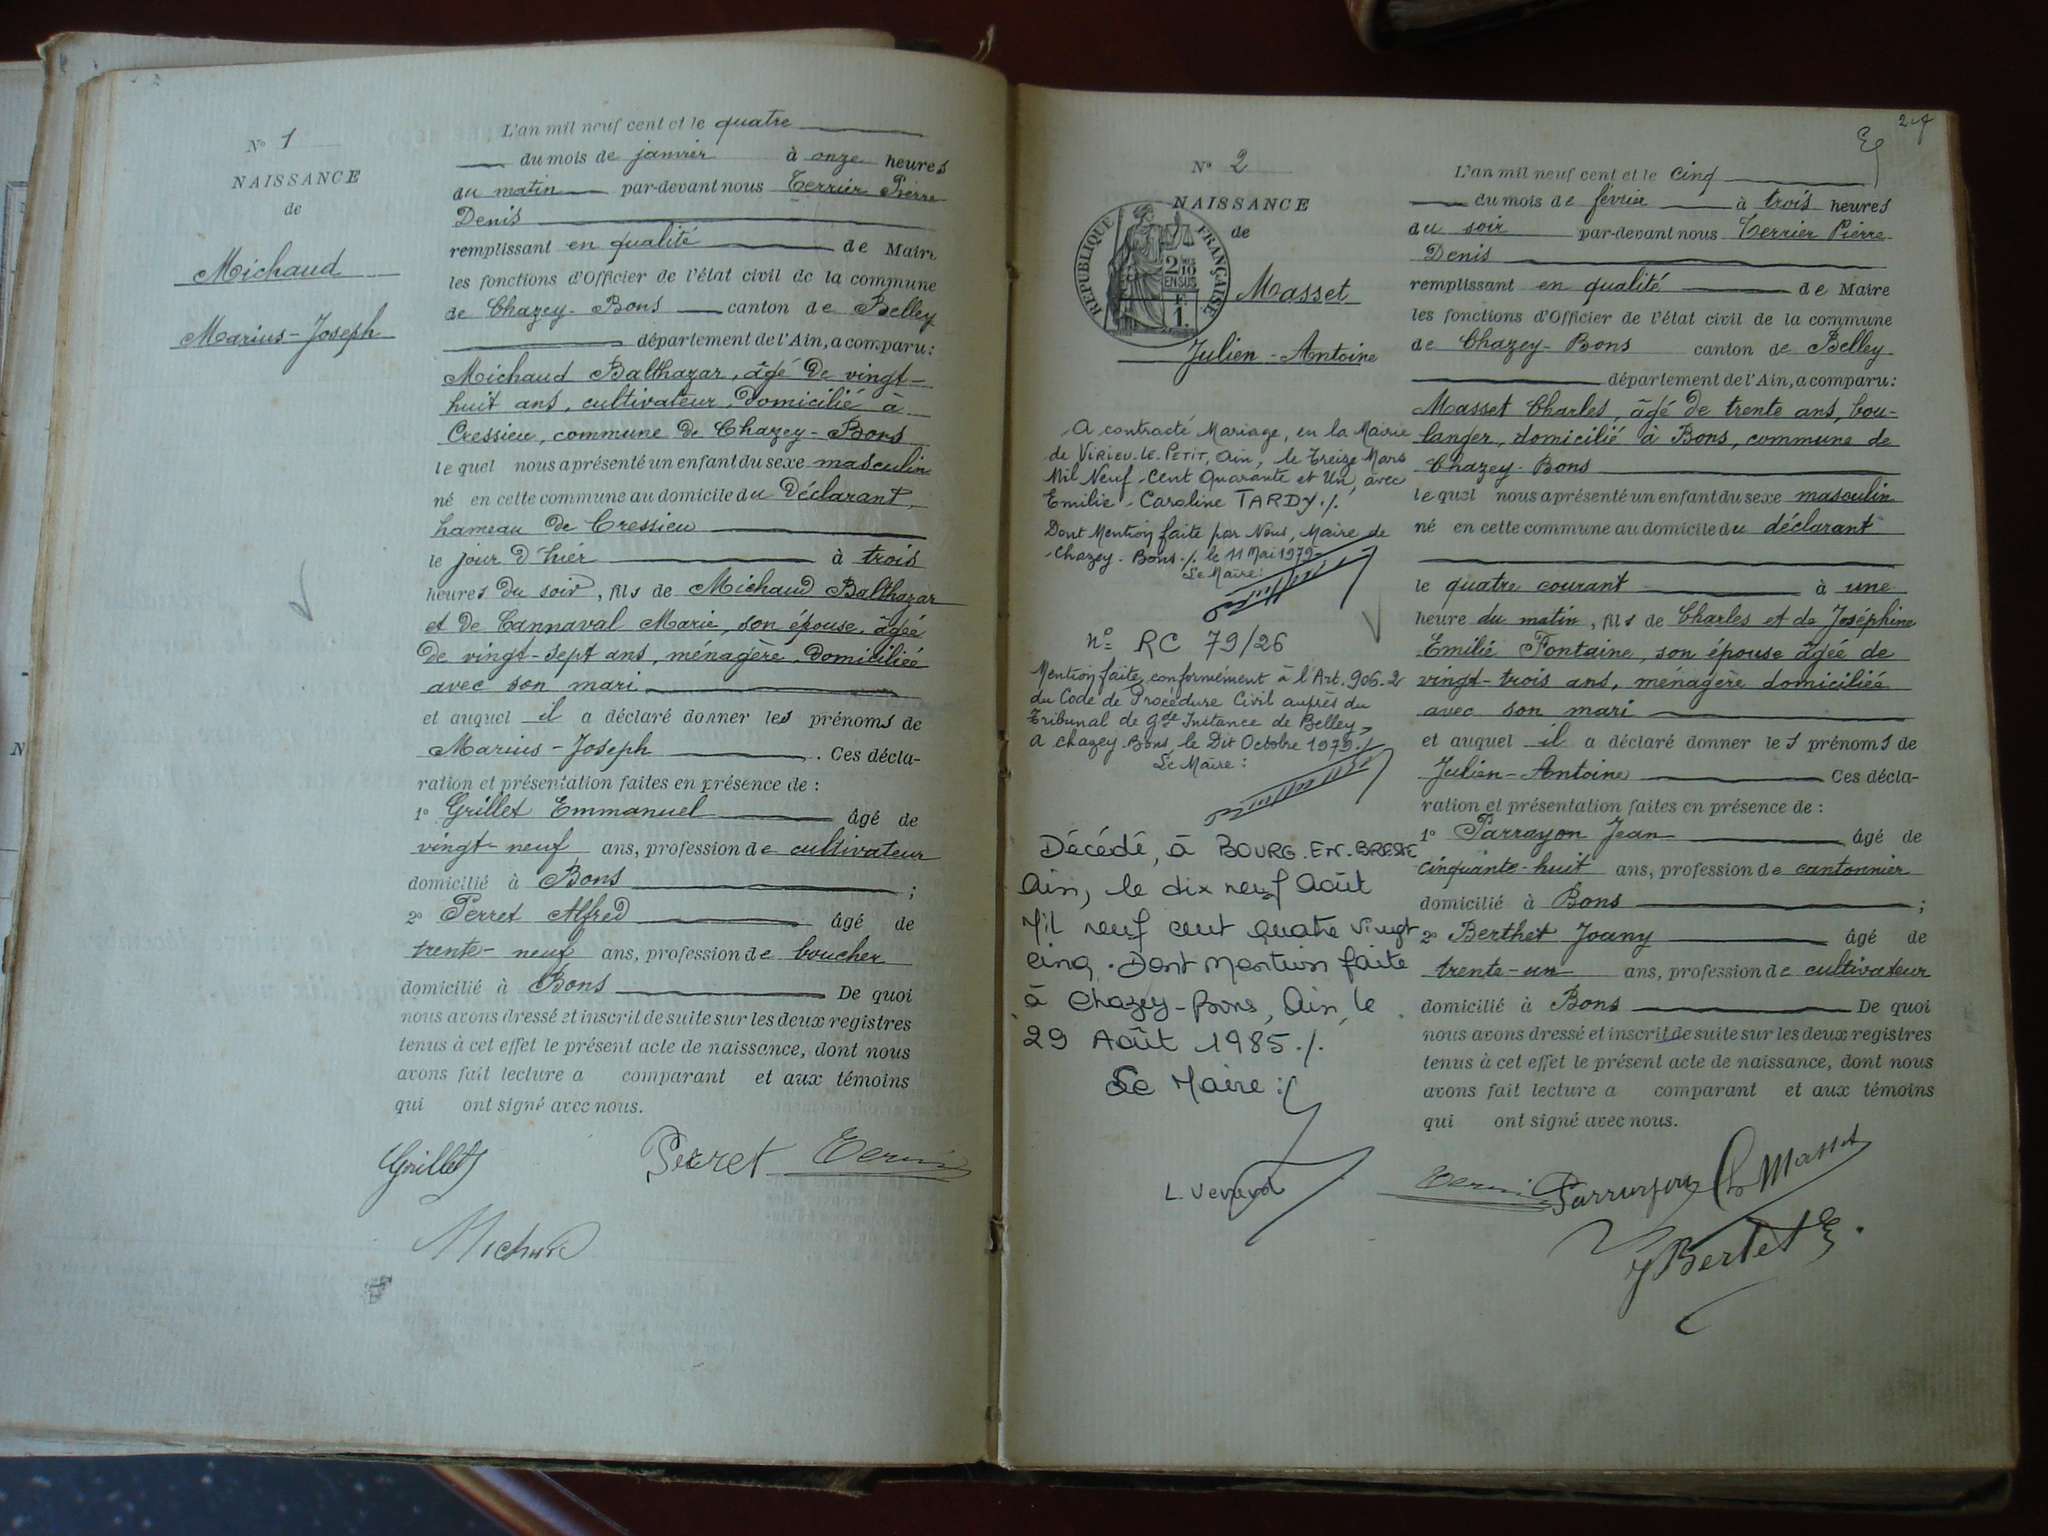 N° 1
NAISSANCE
de
Michaud
Marius-Joseph
L'an mil neuf cent et le quatre
du mois de janvier à onze heures
du matin par-devant nous Terrier Pierre
Denis
remplissant en qualité de Maire
les fonctions d'Officier de l'état civil de la commune
de Chazey-Bons canton de Belley
département de l'Ain, a comparu:
Michaud Balthazar, âgé de vingt-
huit ans, cultivateur, domicilié à
Cressieu, commune de Chazey-Bons
le quel nous a présenté un enfant du sexe masculin
né en cette commune au domicile du Déclarant,
hameau de Cressieu
le jour d'hier à trois
heures du soir, fils de Michaud Balthazar
et de Cannaval Marie, son épouse, âgée
de vingt-sept ans, ménagère, domiciliée
avec son mari
et auquel il a déclaré donner les prénoms de
Marius-Joseph. Ces décla-
ration et présentation faites en présence de :
1° Grillet Emmanuel âgé de
vingt-neuf ans, profession de cultivateur
domicilié à Bons ;
2° Perret Alfred âgé de
trente-neuf ans, profession de boucher
domicilié à Bons De quoi
nous avons dressé et inscrit de suite sur les deux registres
tenus à cet effet le présent acte de naissance, dont nous
avons fait lecture a comparant et aux témoins
qui ont signé avec nous.
Grillet Perret
24
N° 2
NAISSANCE
de
REPUBLIQUE FRANÇAISE
2/10
EN SUS
1 F.
Masset
Julien-Antoine
A contracté Mariage, en la Mairie
de VIRIEU-LE-PETIT, Ain, le treize Mars
Mil Neuf-Cent Quarante et Un, avec
Emilie-Caroline TARDY./.
Dont Mention faite par Nous, Maire de
Chazey-Bons./. le 11 Mai 1979-
Le Maire:
n° RC 79/26
Mention faite, conformément à l'Art. 906-2
du Code de Procédure Civil auprès du
Tribunal de gde Instance de Belley,
A Chazey-Bons, le Dix Octobre 1979./.
Le Maire :
Décédé, à BOURG-EN-BRESSE
Ain, le dix neuf Août
Mil neuf cent quatre vingt
cinq. Dont Mention faite
à Chazey-Bons, Ain, le
29 Août 1985./.
Le Maire :
L'an mil neuf cent et le cinq
du mois de février à trois heures
du soir par-devant nous Terrier Pierre
Denis
remplissant en qualité de Maire
les fonctions d'Officier de l'état civil de la commune
de Chazey-Bons canton de Belley
département de l'Ain, a comparu:
Masset Charles, âgé de trente ans, bou-
langer, domicilié à Bons, commune de
Chazey-Bons
le quel nous a présenté un enfant du sexe masculin
né en cette commune au domicile du déclarant
le quatre courant à une
heure du matin, fils de Charles et de Joséphine
Emilie Fontaine, son épouse âgée de
vingt-trois ans, ménagère domiciliée
avec son mari
et auquel il a déclaré donner les prénoms de
Julien-Antoine Ces décla-
ration et présentation faites en présence de :
1° Parrayon Jean âgé de
cinquante-huit ans, profession de cantonnier
domicilié à Bons ;
2° Berthet Joany âgé de
trente-un ans, profession de cultivateur
domicilié à Bons De quoi
nous avons dressé et inscrit de suite sur les deux registres
tenus à cet effet le présent acte de naissance, dont nous
avons fait lecture a comparant et aux témoins
qui ont signé avec nous.
Ch Masset
J Bertet